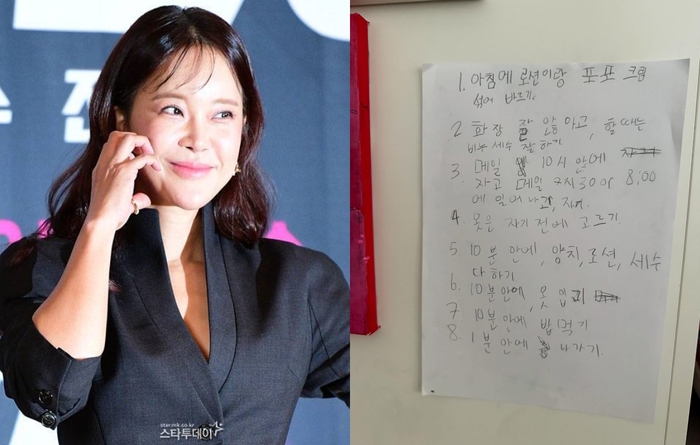 전
starmk.co.kr
스타투데이
1. 아침에 로션이랑 포포 크림
섞어 바르기.
2. 화장 잘 안하고, 할때는
비누 세수 잘하기
3. 매일 10시 안에
자고 매일 7시30 or 8:00
에 일어나고,
4. 옷은 자기 전에 고르기
5. 10분 안에, 양치, 로션, 세수
다 하기
6. 10분안에, 옷 입기
7. 10분안에 밥먹기
8. 1분 안에 나가기.